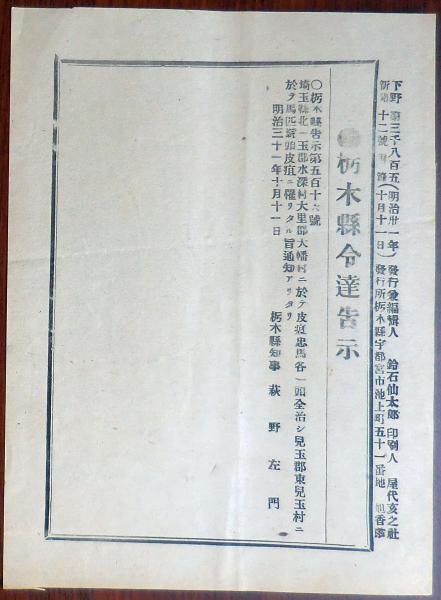 下野 第三千八百五(明治卅一年) 發行兼編輯人 鈴石仙太郎 印刷人 尾代亥之社
新聞 十二號附錄(十月十一日) 發行所栃木縣宇都宮市池上町五十一番地
栃木縣令達告示
〇栃木縣告示第五百十六號
埼玉縣北 玉郡水深村大里郡大幡村ニ於テ皮疽患馬各一頭全治シ兒玉郡東兒玉村ニ
於テ馬匹 頭皮疽ニ罹リタル旨通知アリタリ
明治三十一年十月十一日
栃木縣知事 萩野左門